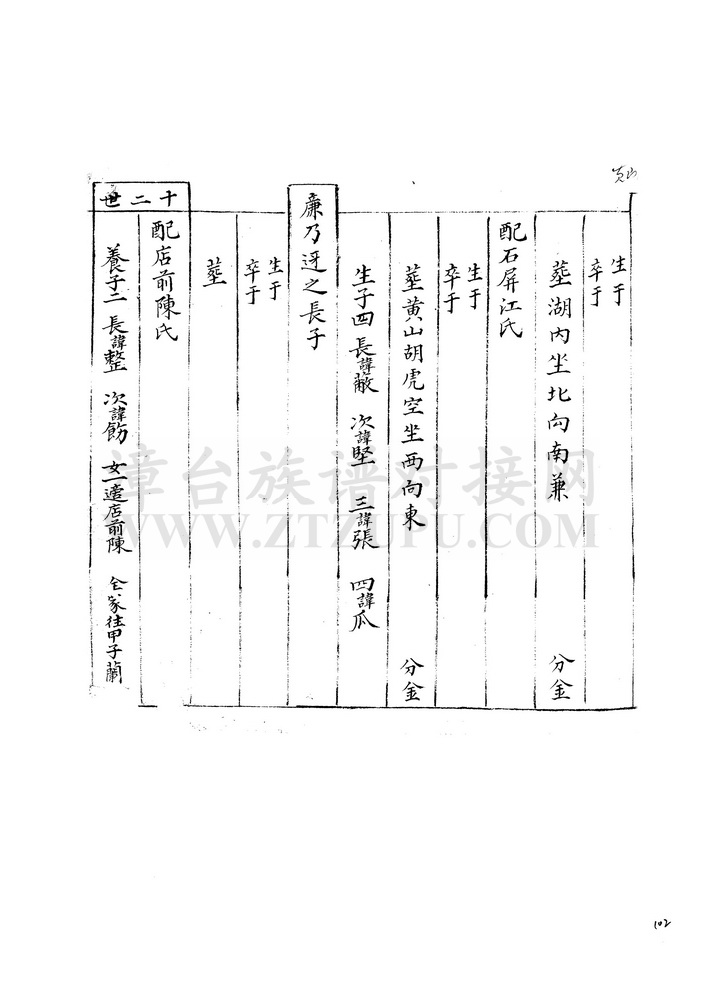 生于
卒于
塟湖内坐北向南兼 分金
配石屏江氏
生于
卒于
塟黄山胡虎空坐西向東 分金
生子四 長諱敝 次諱堅 三諱張 四諱瓜
廉乃迓之長子
生于
卒于
塟
配店前陳氏
十二世
養子二 長諱整 次諱飭 女一適店前陳 仝家往甲子蘭
漳台族谱对接网
WWW.ZTZUPU.COM
102